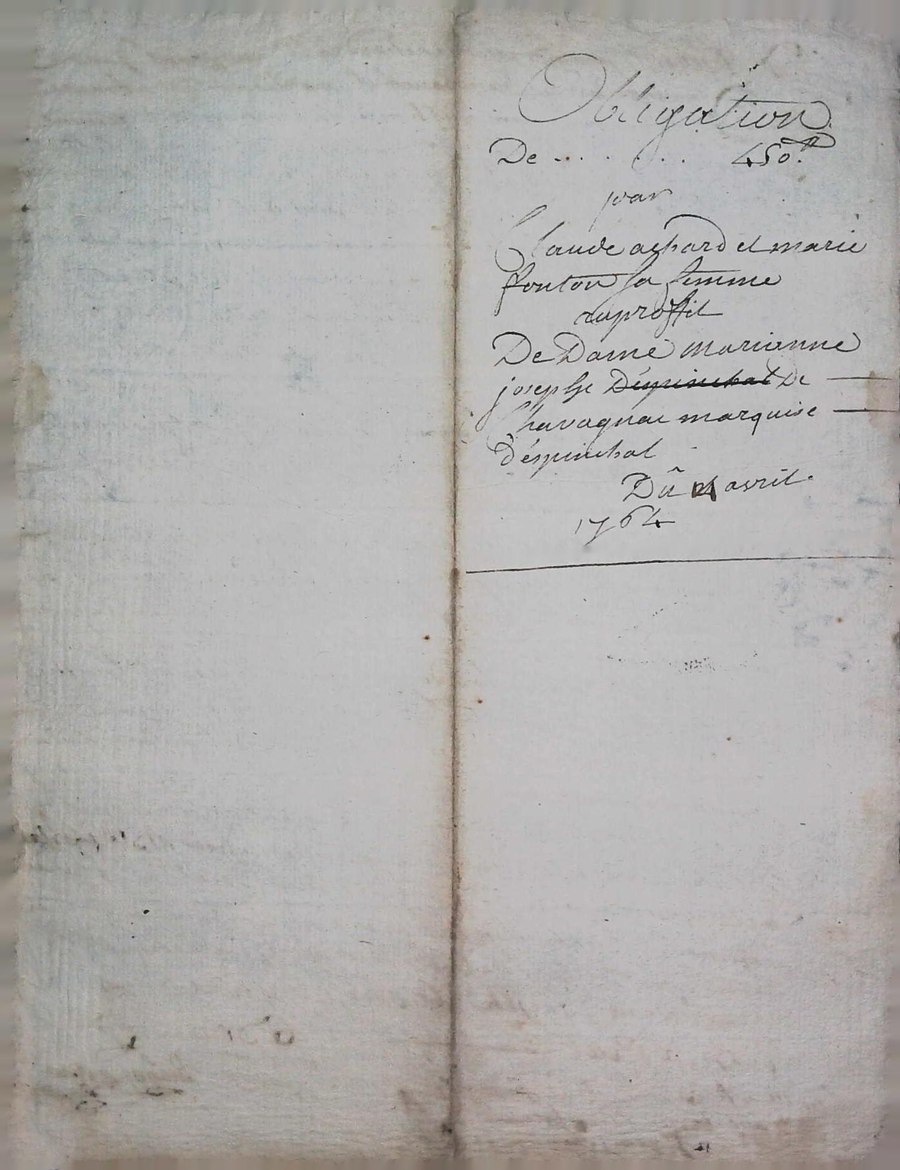 Obligation
De ... . . . 450ᵗᵗ
par
Claude achard et marie
fonton sa femme
auproffit
De Dame marianne
josephe Déspinchal De
Chavagnac marquise
d'éspinchal
Du 4 avril.
1764